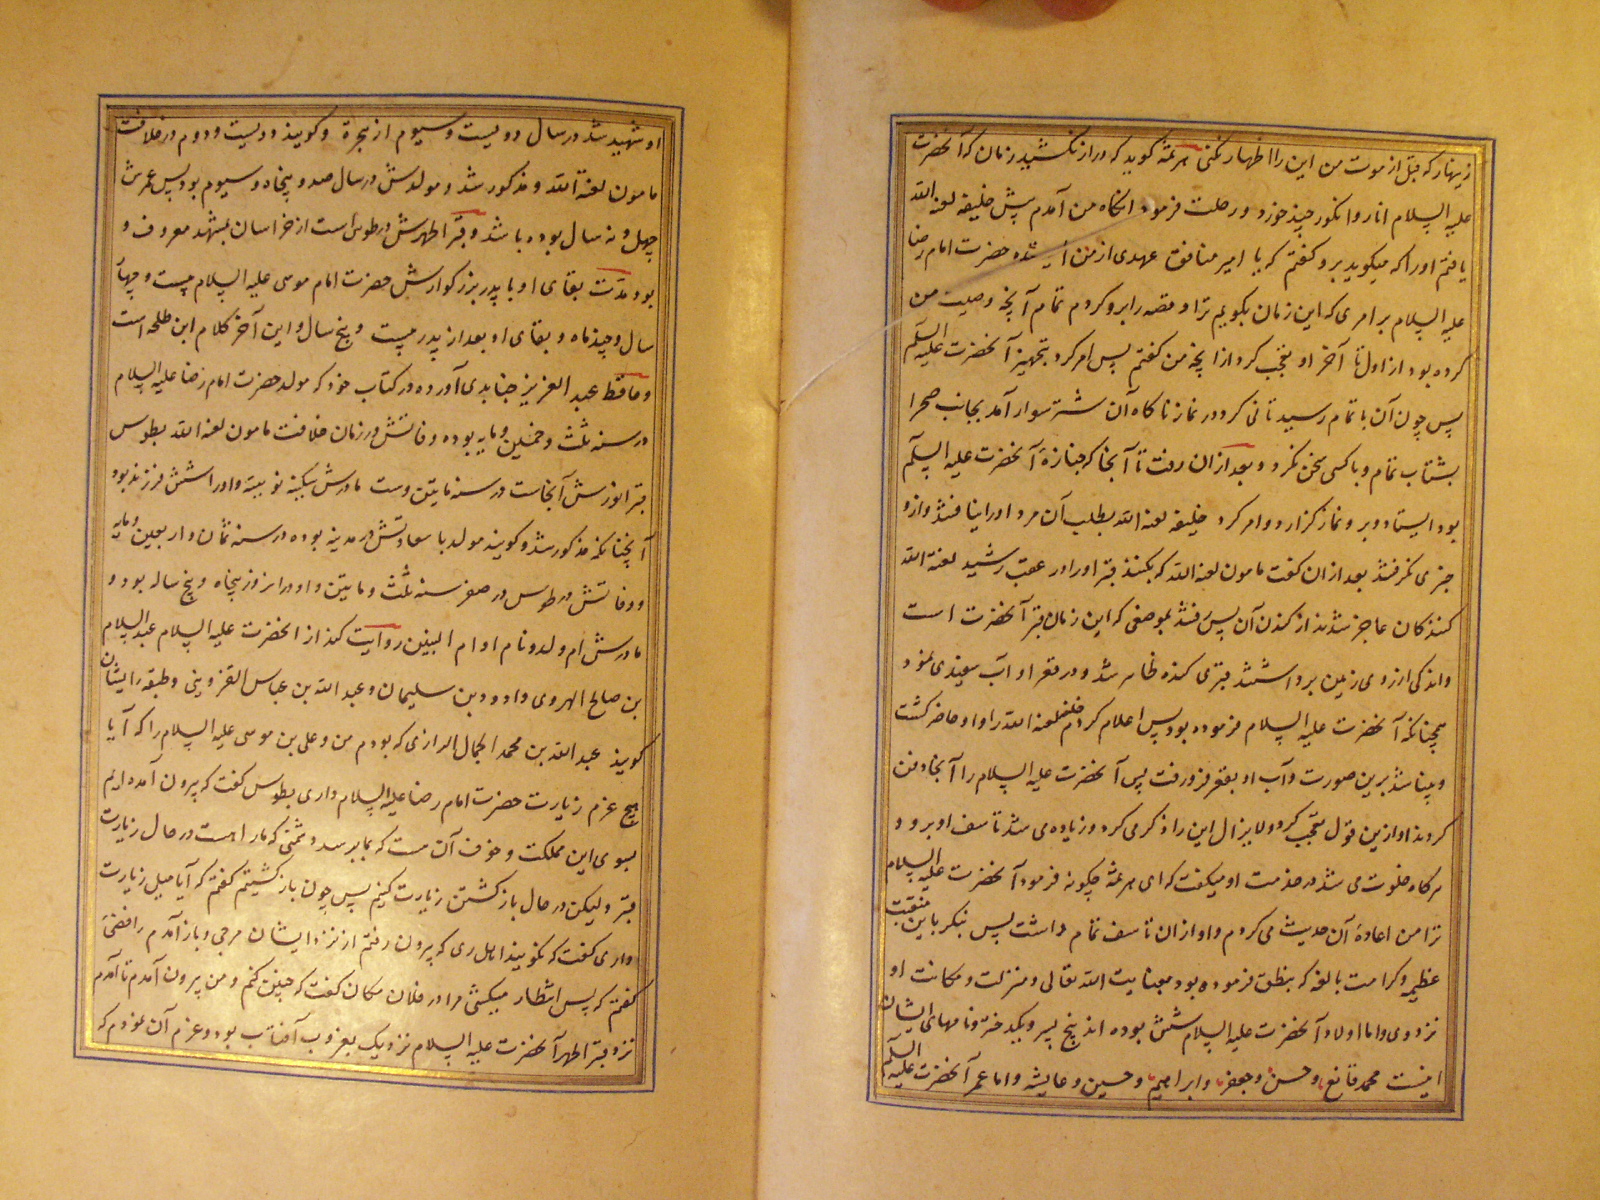 زینهار که قبل از موت من این را اظهار نکنی هرثمه گوید که دراز نکشید زمان که آنحضرت
علیه السلام انار و انگور چند خورد و رحلت فرمود آنگاه من آمدم پیش خلیفه لعنه الله
یافتم اورا که میگوید برو گفتم که یا امیر منافق عهدی از من حضرت امام رضا
علیه السلام بر امری که این زمان بگویم ترا و قصه را برو کردم تمام آنچه وصیت من
کرده بود از اول تا آخر او تعجب کرد از آنچه من گفتم پس امر کرد بتجهیز آنحضرت علیه السلم
پس چون آن باتمام رسید تانی کرد در نماز ناگاه آن شتر سوار آمد بجانب صحرا
بشتاب تمام و با کسی سخن نکرد و بعد ازان رفت تا آنجا که جنازهٔ آنحضرت علیه السلم
بود ایستاد و برو نماز گزارد و امر کرد خلیفه لعنه الله بطلب آن مرد اورا نیافتند و ازو
خبری نگرفتند بعد ازان گفت مامون لعنه الله که بکنند قبر اورا در عقب رشید لعنة الله
کنندگان عاجز شدند از کندن آن پس رفتند بموضعی که این زمان قبر آنحضرت است
و اندکی از روی زمین برداشتند قبری کنده ظاهر شد و در قعر او آب سفیدی نمود
همچنانکه آنحضرت علیه السلام فرموده بود پس اعلام کردم خلیفه لعنه الله را و او حاضر گشت
و بینا شد برین صورت و آب او بقعر فرو رفت پس آنحضرت علیه السلام را آنجا دفن
کردند و او ازین قول تعجب کرد و لایزال این را ذکر می کرد و زیاده می شد تاسف او برو و
هرگاه خلوت می شد در خدمت او میگفت که ای هرثمه چگونه فرمود آنحضرت علیه السلام
ترا من اعادهٔ آن حدیث می کردم و او ازان تاسف تمام داشت پس بنگر باین منقبت
عظیمه و کرامت بالغه که بنطق فرموده بود بعنایت الله تعالی و منزلت و مکانت او
نزد وی و اما اولاد آنحضرت علیه السلام شش بوده اند پنج پسر و یکدختر و نامهای ایشان
اینست محمد قانع و حسن و جعفر و ابراهیم و حسین و عایشه و اما عمر آنحضرت علیه السلم
او شهید شد در سال دویست و سیوم از هجرة و گویند دویست و دوم در خلافت
مامون لعنة الله و مذکور شد و مولدش در سال صد و پنجاه و سیوم بود پس عمرش
چهل و نه سال بوده باشد و قبر اطهرش در طوس است از خراسان بمشهد معروف و
بود مدت بقای او با پدر بزرگوارش حضرت امام موسی علیه السلام بیست و چهار
سال و چند ماه و بقای او بعد از پدر بیست و پنج سال و این آخر کلام ابن طلحه است
و حافظ عبد العزیز جنابدی آورده در کتاب خود که مولد حضرت امام رضا علیه السلام
در سنه ثلث و خمسین و مایه بوده وفاتش در زمان خلافت مامون لعنه الله بطوس
قبر انورش آنجاست در سنه مایتین وست مادرش سکینه نوبیه و اورا شش فرزند بود
آنچنانکه مذکور شد و گویند مولد با سعادتش در مدینه بوده در سنه ثمان و اربعین و مایه
و وفاتش در طوس در صفر سنه ثلث و مایتین و او درانروز پنجاه و پنج ساله بود و
مادرش ام ولد و نام او ام البنین روایت کند از آنحضرت علیه السلام عبد السلام
بن صالح الهروی و داوود بن سلیمان و عبد الله بن عباس القزوینی و طبقهٔ ایشان
گویند عبد الله بن محمد الجمال الرازی که بودم من و علی بن موسی علیه السلام را که آیا
هیچ عزم زیارت حضرت امام رضا علیه السلام داری بطوس گفت که بیرون آمده ایم
بسوی این مملکت و خوف آن هست که بما برسد دشمنی که ما را هست در حال زیارت
قبر ولیکن در حال بازگشتن زیارت کنیم پس چون بازگشتیم گفتم که آیا میل زیارت
داری گفت که نگویند اهل ری که بیرون رفتم از نزد ایشان مرجی و باز آمدم رافضی
گفتم که پس انتظار میکشی مرا در فلان مکان گفت که چنین کنم و من بیرون آمدم تا آمدم
نزد قبر اطهر آنحضرت علیه السلام نزدیک بغروب آفتاب بود و عزم آن نمودم که